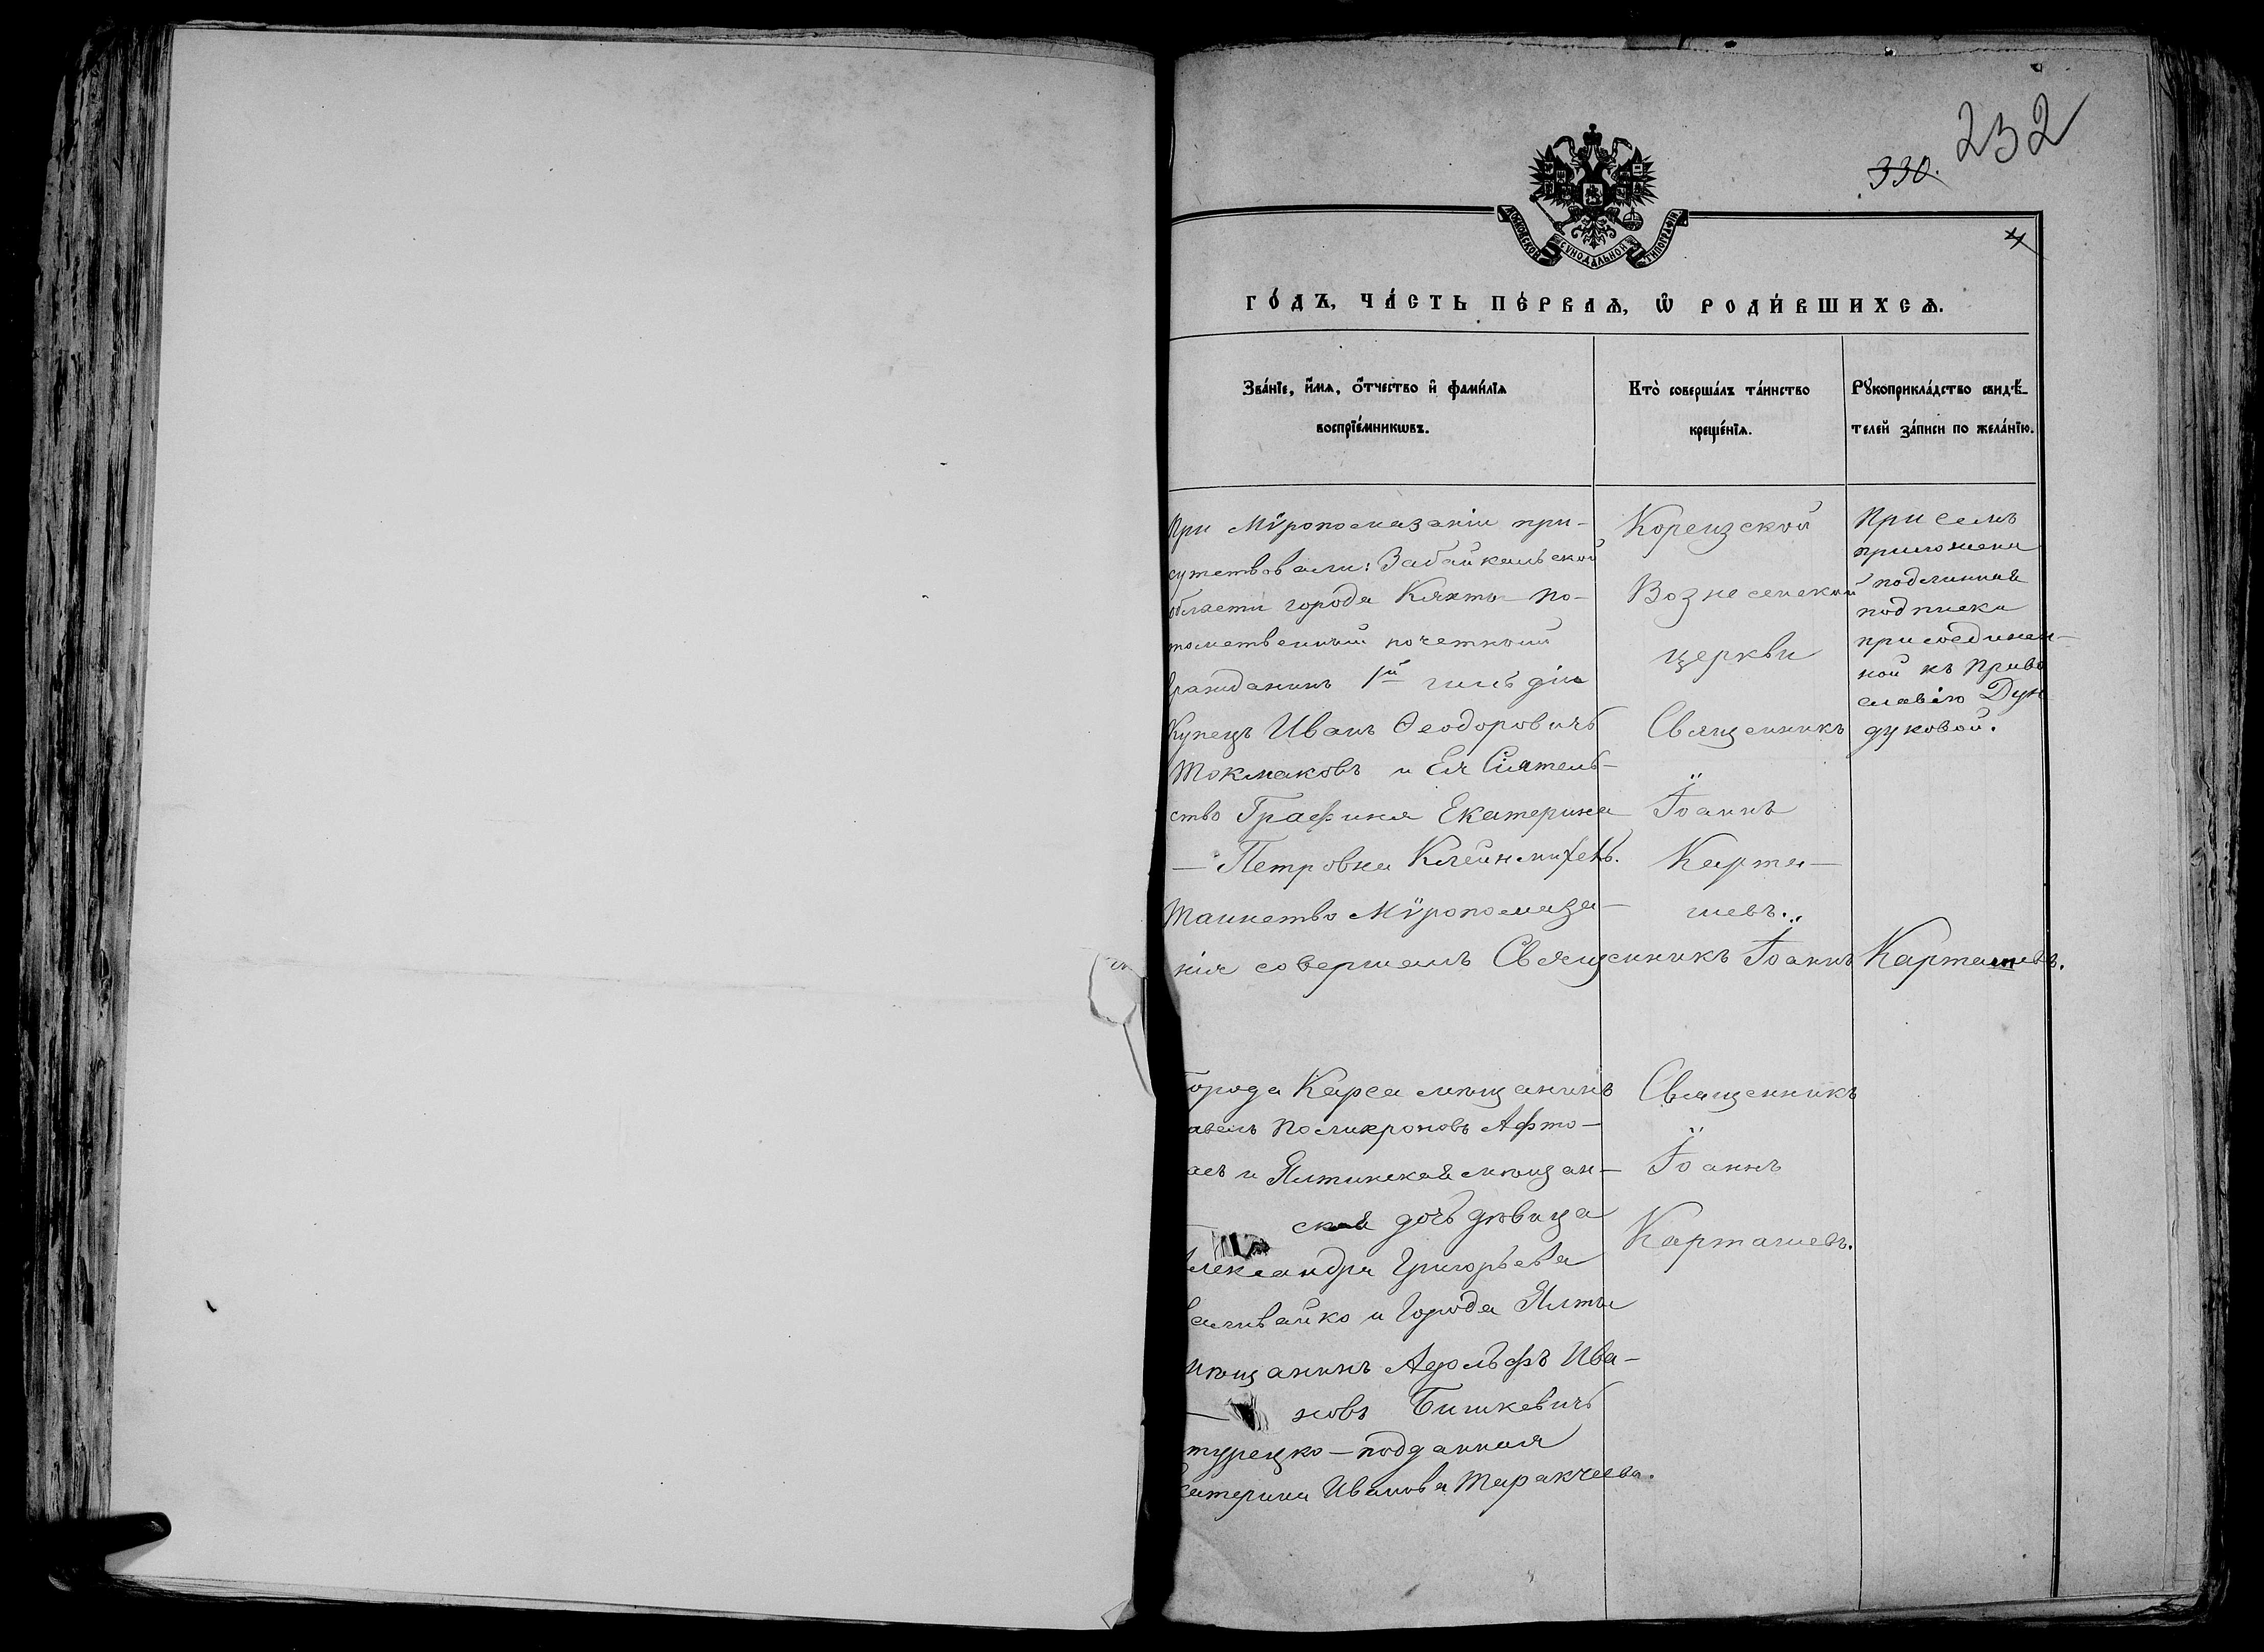 232
330.
4
МОСКОВСКОЙ СѴНОДАЛЬНОЙ ТИПОГРАФІИ
ГО́ДЪ, ЧА́СТЬ ПЕ́РВАѦ, Ѡ҆ РОДИ́ВШИХСѦ.
Зва́нїе, и҆́мѧ, ѻ҆́тчество и҆ фами́лїѧ
воспрїе́мникѡвъ.
Кто̀ соверша́лъ та́инство
креще́нїѧ.
Рꙋкоприкла́дство свидѣ́-
телей за́писи по жела́нїю.
При Мѵропомазаніи при-
сутствовали: Забайкальской
области города Кяхты по-
томственный почетный
гражданинъ 1й гильдіи
Купецъ Иванъ Ѳеодоровичъ
Токмаковъ и Ея Сіятель-
ство Графиня Екатерина
— Петровна Клейнмихель.
Таинство Мѵропомаза-
нія совершалъ Священникъ Іоаннъ Карташевъ.
Кореизской
Вознесенской
церкви
Священникъ
Іоаннъ
Карта-
шевъ.
При семъ
приложена
подлинная
подписка
присоединен-
ной къ Право
славію Дун
дуковой.
Города Карса мѣщанинъ
авелъ Поликроновъ Афто-
аевъ и Ялтинская мѣщан-
ская дочь дѣвица
Александра Григорьева
и Города Ялты
мѣщанинъ Адольфъ Ива-
— новъ Бишкевичъ
турецко-подданная
Екатерина Иванова Таракчеева.
Священникъ
Іоаннъ
Карташевъ.